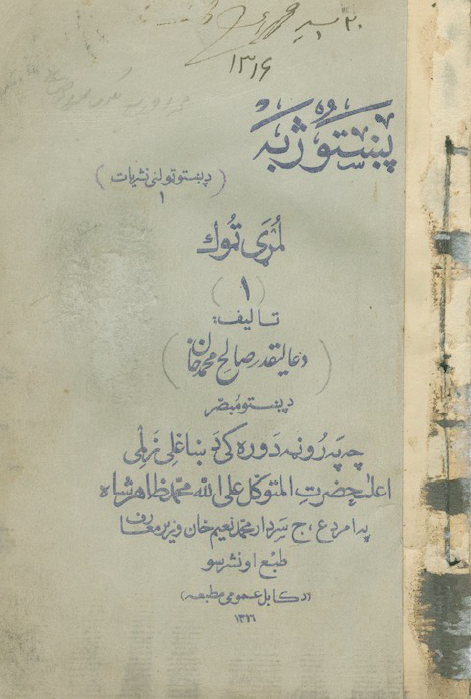 ۱۳۱۶
پښتو ژبه
(د پښتو ټولنی نشریات)
۱
لمړی ټوک
(۱)
تالیف:
(د عالیقدر صالح محمد خان)
د پښتو مبصر
چه په رونه دوره کی د ښاغلی زلمی
اعلیٰحضرت المتوکل علی الله محمد ظاهر شاه
په امر د ع، ج سردار محمد نعیم خان وزیر معارف
طبع او نشر سو
(د کابل عمومی مطبعه)
۱۳۱۶